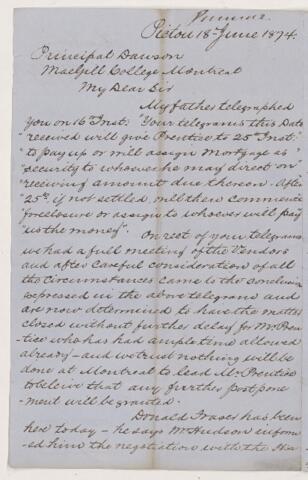 Pictou 18 June 1874.
Principal Dawson
MacGill College Montreal
My Dear Sir
My father telegraphed
you on 16th Inst: "Your telegram this Date
"received will give Prentice to 25th Inst:
"to pay up or will assign Mortgage as
"security to whoever he may direct on
"receiving amount due thereon. After
"25th, if not settled, will then commence
"foreclosure or assign to whoever will pay
"us the money". On rect of your telegram
we had a full meeting of the Vendors
and after careful consideration of all
the circumstances came to the conclusion
expressed in the above telegram and
are now determined to have the matter
closed without further delay for Mr Pren-
tice who has had ample time allowed
already - and we trust nothing will be
done at Montreal to lead Mr Prentice
to believe that any further postpone-
ment will be granted.
Donald Fraser has been
here today - he says Mr Hudson inform-
ed him the negotiation with the